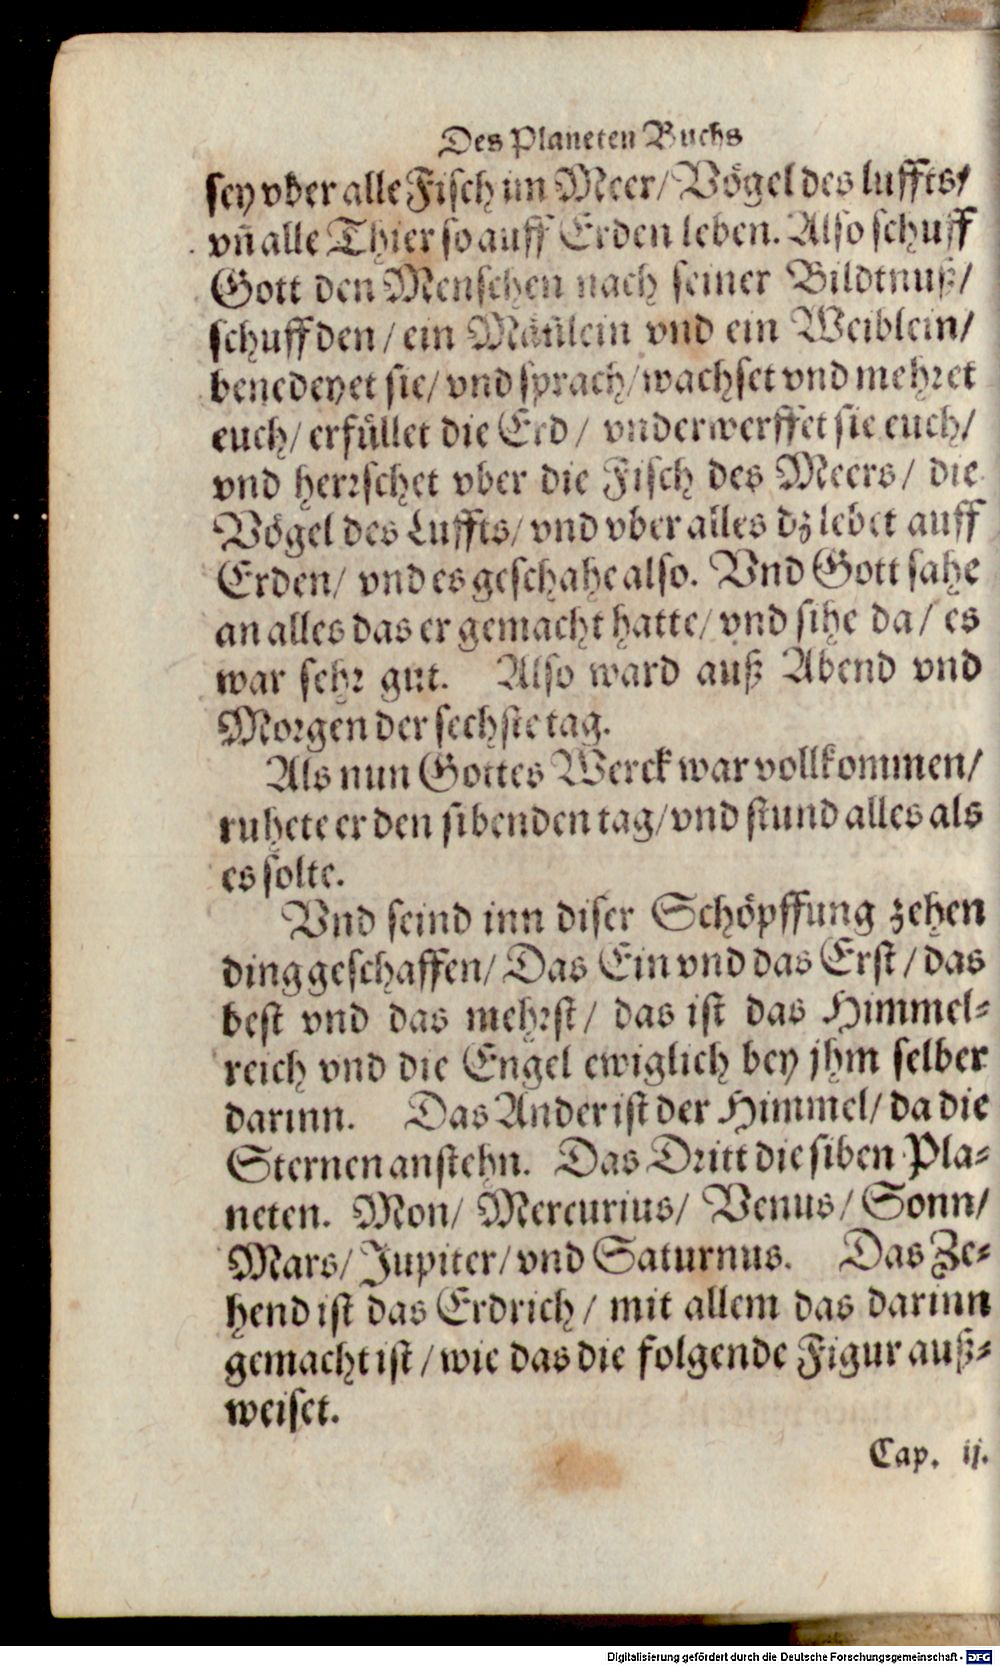 Des Planeten Buchs
sey vber alle Fisch im Meer/ Vögel des luffts/
vñ alle Thier so auff Erden leben. Also schuff
Gott den Menschen nach seiner Bildtnuß/
schuff den / ein Mäñlein vnd ein Weiblein/
benedeyet sie/ vnd sprach/ wachset vnd mehret
euch/ erfüllet die Erd / vnderwerffet sie euch/
vnd herrschet vber die Fisch des Meers/ die
Vögel des Luffts/ vnd vber alles dz lebet auff
Erden/ vnd es geschahe also. Vnd Gott sahe
an alles das er gemacht hatte/ vnd sihe da/ es
war sehr gut. Also ward auß Abend vnd
Morgen der sechste tag.
Als nun Gottes Werck war vollkommen/
ruhete er den sibenden tag/ vnd stund alles als
es solte.
Vnd seind inn diser Schöpffung zehen
ding geschaffen/ Das Ein vnd das Erst / das
best vnd das mehrst/ das ist das Himmel⸗
reich vnd die Engel ewiglich bey jhm selber
darinn. Das Ander ist der Himmel/ da die
Sternen anstehn. Das Dritt die siben Pla⸗
neten. Mon/ Mercurius/ Venus/ Sonn/
Mars/ Jupiter/ vnd Saturnus. Das Ze⸗
hend ist das Erdrich / mit allem das darinn
gemacht ist / wie das die folgende Figur auß⸗
weiset.
Cap. ij.
Digitalisierung gefördert durch die Deutsche Forschungsgemeinschaft - DFG